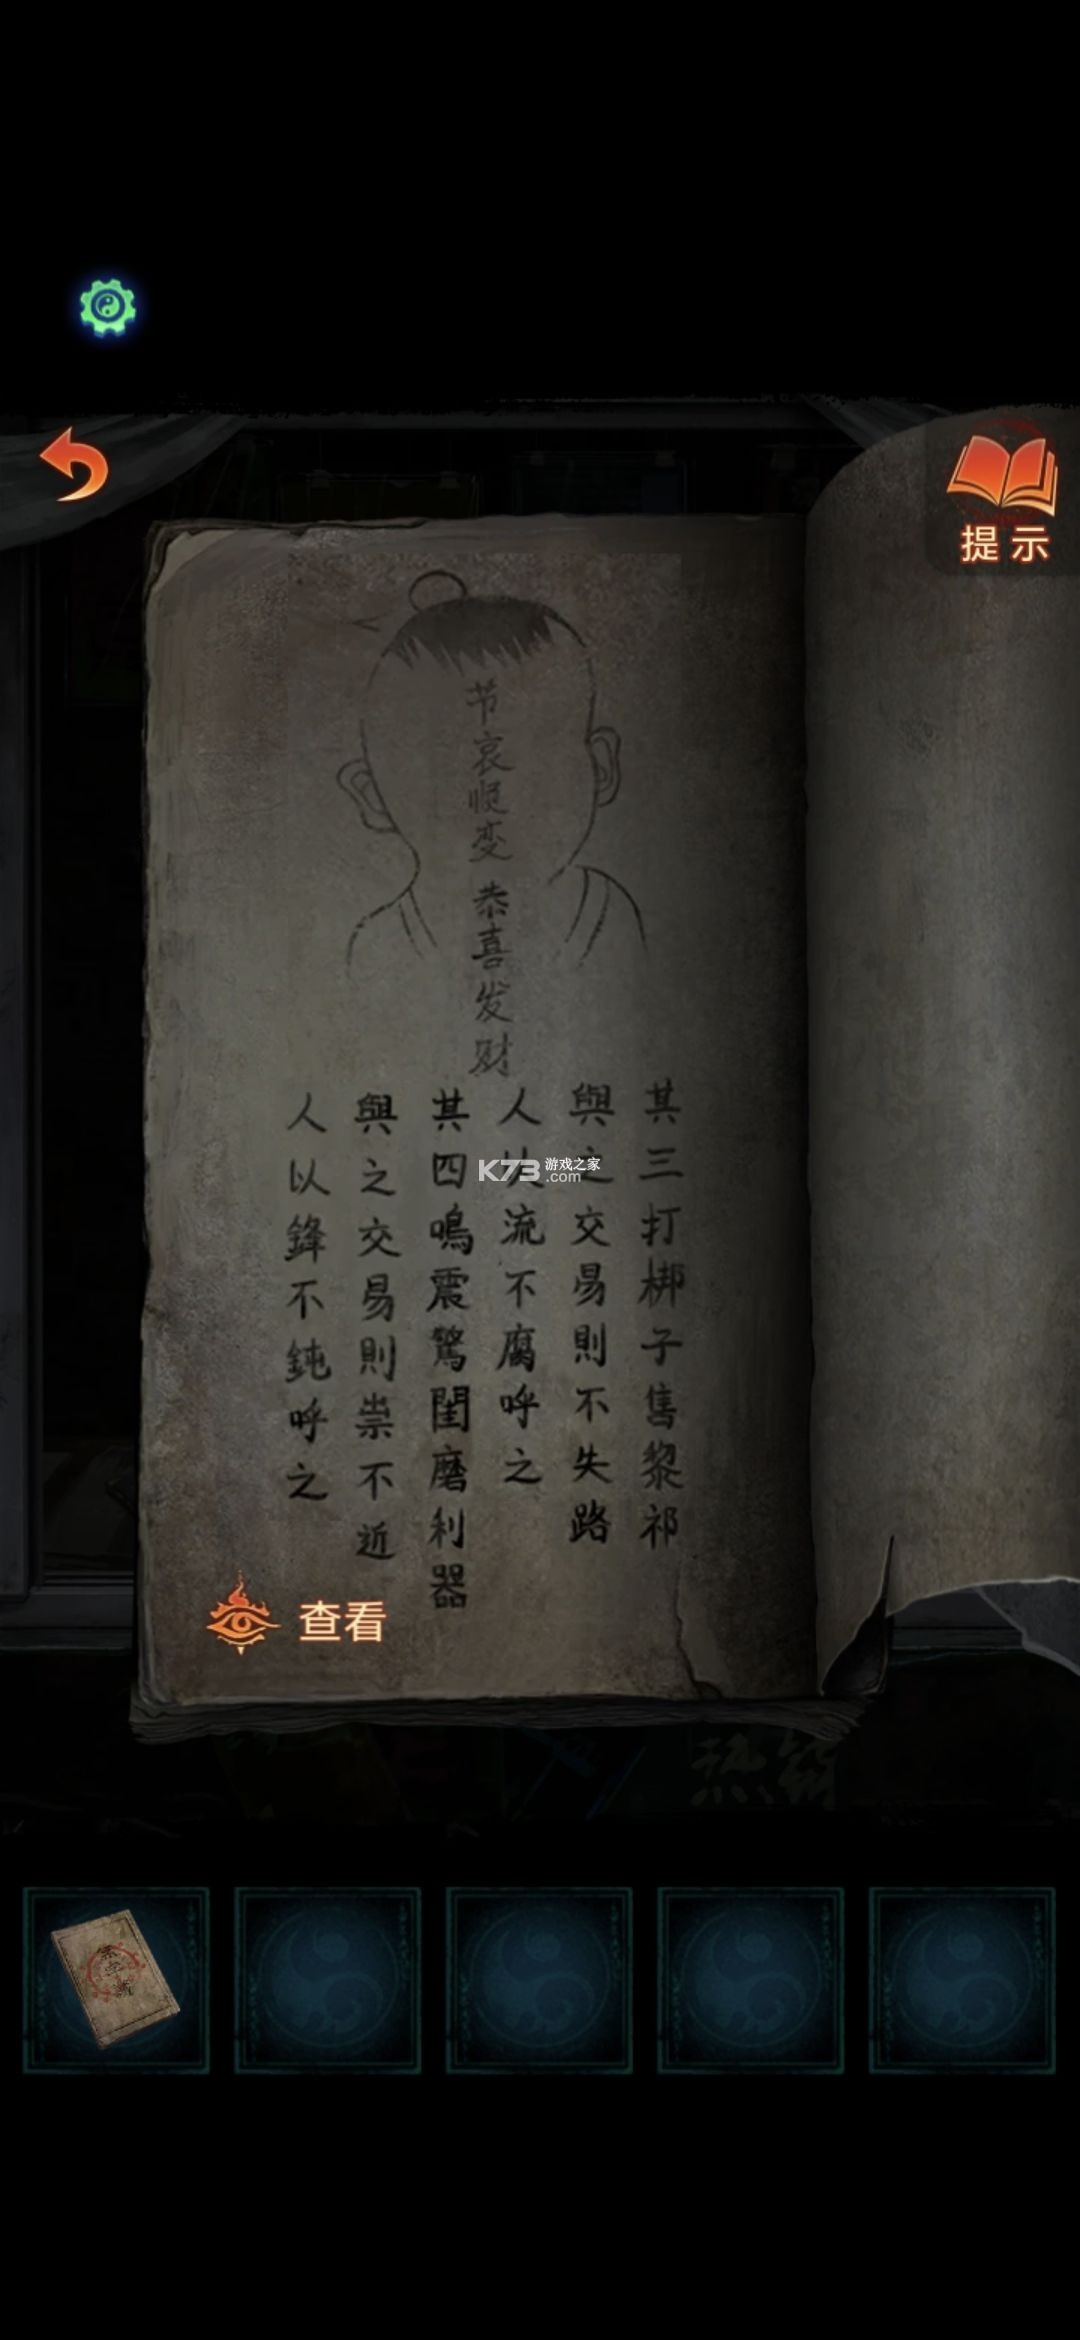 提示
节哀顺变
恭喜发财
其三打梆子售黎祁
與之交易則不失路
人以流不腐呼之
其四鳴震驚閨磨利器
與之交易則祟不近
人以鋒不鈍呼之
K73 游戏之家
.com
查看
热销